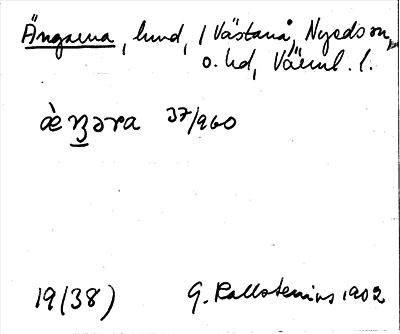 Ängarna, lund, / Västanå, Nyeds sn,
o. hd, Värml. l.
ὲŋəra 37/960
19(38) G. Kallstenius 1902